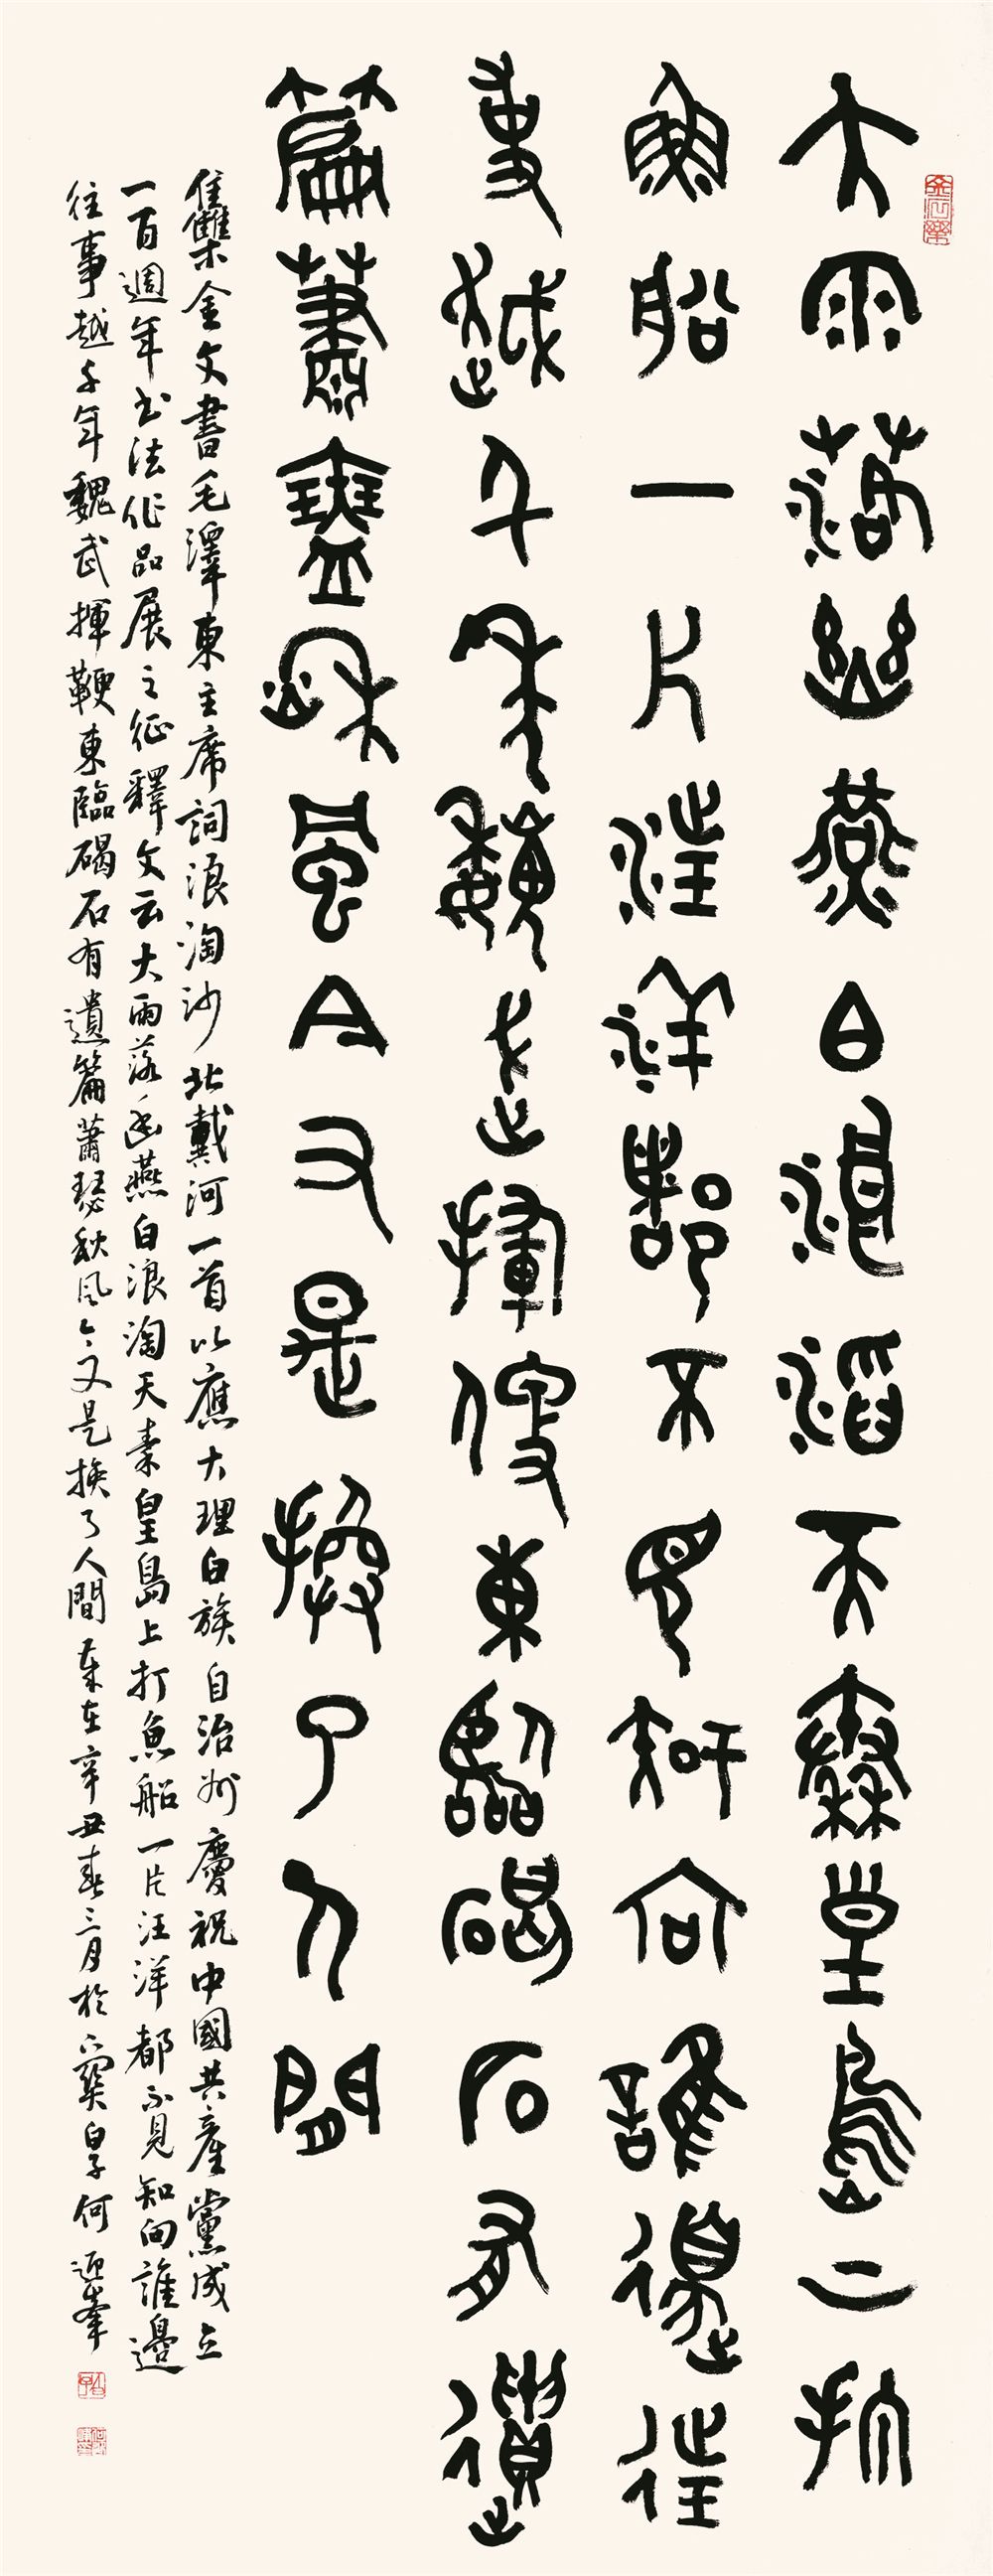 大雨落幽燕白浪滔天秦皇島上打
魚船一片汪洋都不見知向誰邊往
事越千年魏武揮鞭東臨碣石有遺
篇蕭瑟秋風今又是換了人間
集金文書毛澤東主席詞浪淘沙北戴河一首以應大理白族自治州慶祝中國共產黨成立
一百週年書法作品展之征釋文云大雨落幽燕白浪淘天秦皇島上打魚船一片汪洋都不見知向誰邊
往事越千年魏武揮鞭東臨碣石有遺篇蕭瑟秋風今又是換了人間 歲在辛丑春三月於 何迎峯